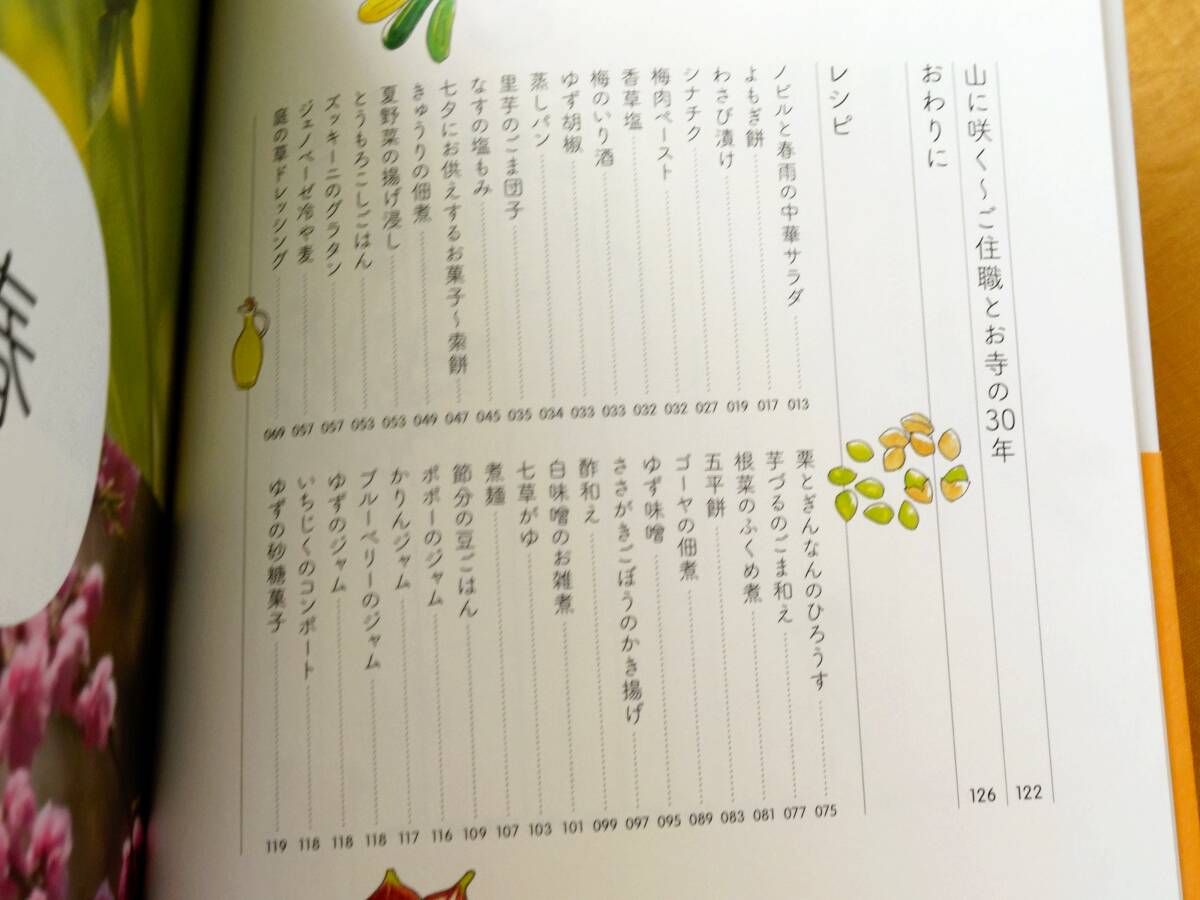 山に咲く～ご住職とお寺の30年 122
おわりに 126
レシピ
ノビルと春雨の中華サラダ 013
よもぎ餅 017
わさび漬け 019
シナチク 027
梅肉ペースト 032
香草塩 032
梅のいり酒 033
ゆず胡椒 033
蒸しパン 034
里芋のごま団子 035
なすの塩もみ 045
七夕にお供えするお菓子～索餅 047
きゅうりの佃煮 049
夏野菜の揚げ浸し 053
とうもろこしごはん 053
ズッキーニのグラタン 057
ジェノベーゼ冷や麦 057
庭の草ドレッシング 069
栗とぎんなんのひろうす 075
芋づるのごま和え 077
根菜のふくめ煮 081
五平餅 083
ゴーヤの佃煮 089
ゆず味噌 095
ささがきごぼうのかき揚げ 097
酢和え 099
白味噌のお雑煮 101
七草がゆ 103
煮麺 107
節分の豆ごはん 109
ポポーのジャム 116
かりんジャム 117
ブルーベリーのジャム 118
ゆずのジャム 118
いちじくのコンポート 118
ゆずの砂糖菓子 119